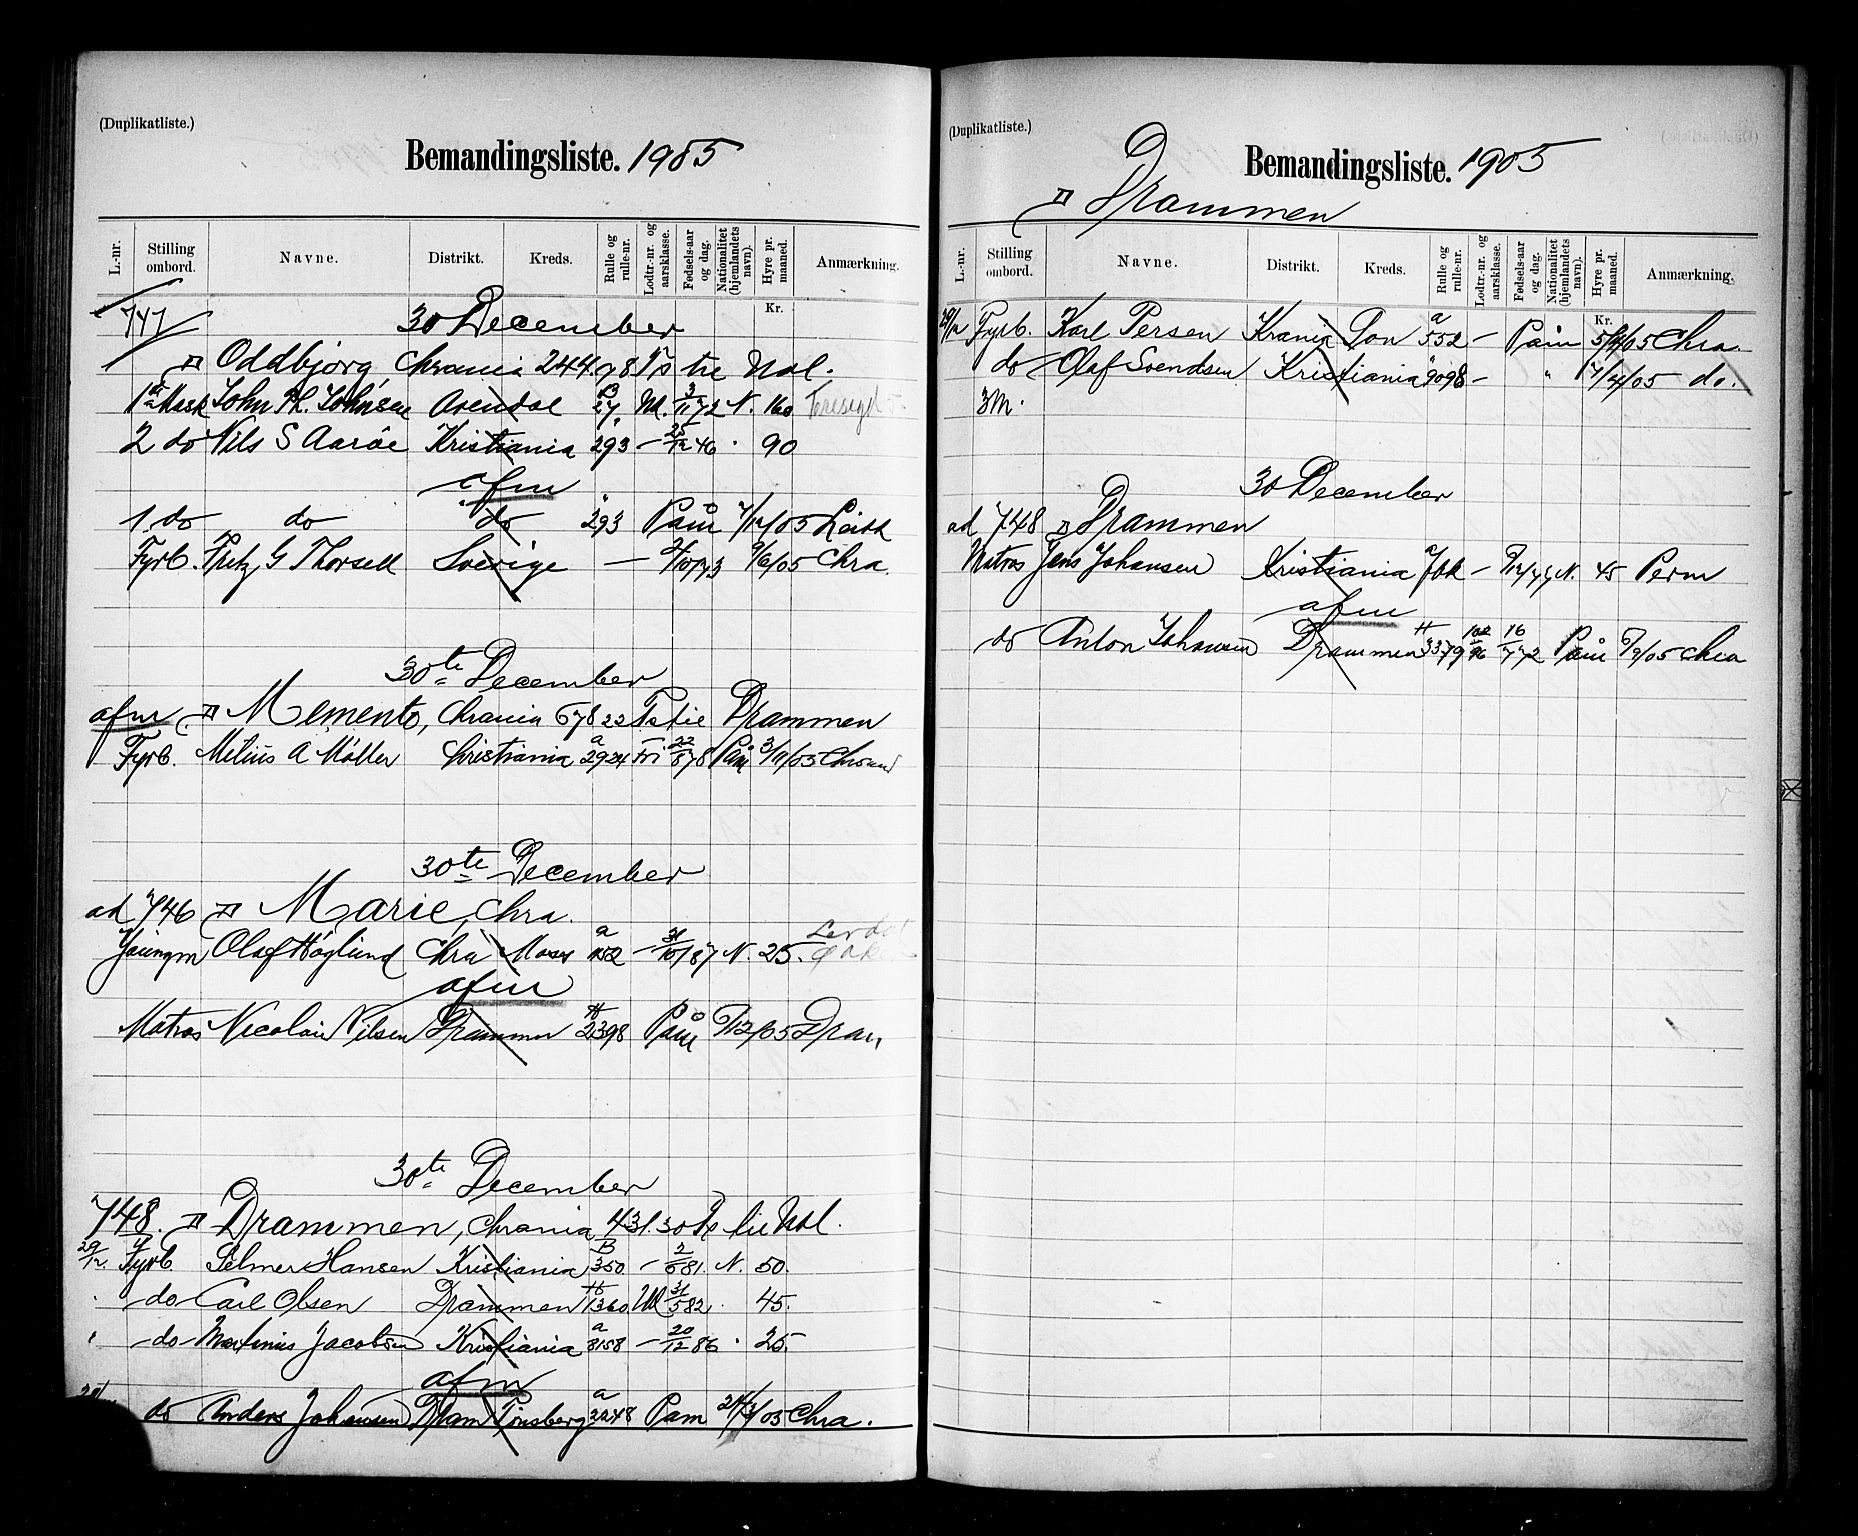 (Duplikatliste.)
Bemandingsliste. 1905
L.-nr. Stilling ombord. Navne. Distrikt. Kreds. Rulle og rulle-nr. Lodtr.-nr. og aarsklasse. Fødsels-aar og dag. Nationalitet (hjemlandets navn). Hyre pr. maaned. Anmærkning.
Kr.
747 30 December
D Oddbjørg Chrania 244.78 Ts tie Udl.
1ste Mask John Johnsen Arendal B 27 Ud. 3/11 72 N. 160
2 do Nils S Aarøe Kristiania 293 – 25/12 46 90
afm
1 do do do " 293 Paam 7/12/05 Leith
Fyrb. Fritz G Thorsell Sverige — 2/10/73 9/6/05 Chra.
30te December
afm D Memento, Chrania 678 22 Ts tie Drammen
Fyrb. Milius A Møller Christiania a 2924 Fri 22/8 78 Paam 3/11/05
30te December
ad 746 D Marie, Chra.
Youngm Olaf Höglund Chra Moss a 152 – 31/10/87 N. 25.
afm
Matros Nicolai Nilsen Drammen H 2398 Paam 6/12/05 Dram
30te December
748. D Drammen, Chrania 431.30 tie Udl.
29/12 Fyrb. Selmer Hansen Kristiania B 350 – 2/6 81. N. 50.
do Carl Olsen Drammen H 1360 Ud 31/5 82 45.
do Martinius Jacobsen Kristiania a 8158 – 20/12 86 25.
afm
do Anders Johansen Dram Tönsberg a 2248 Paam Chra.
(Duplikatliste.)
Bemandingsliste. 1905
D Drammen
L.-nr. Stilling ombord. Navne. Distrikt. Kreds. Rulle og rulle-nr. Lodtr.-nr. og aarsklasse. Fødsels-aar og dag. Nationalitet (hjemlandets navn). Hyre pr. maaned. Anmærkning.
Kr.
Fyrb. Karl Persen Krania Ton a 552 – Paam Chra.
do Olaf Svendsen Kristiania " 9098 – " 7/4/05 do.
3M.
30 December
ad 748 D Drammen
Matros Jens Johansen Kristiania – N. 45 Perm
afm
do Anton Johansen Drammen H 3379 102/96 16/7 72 Paam 5/9/05 Chra